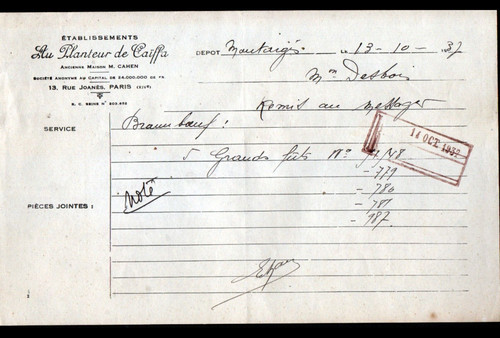 ÉTABLISSEMENTS
Au Planteur de Caïffa
ANCIENNE MAISON M. CAHEN
SOCIÉTÉ ANONYME AU CAPITAL DE 24.000.000 DE FR.
13, RUE JOANÈS, PARIS (XIVᵉ)
R. C. SEINE Nº
DEPOT Montargis LE 13-10-37
Mm Desbois
Remis au Messager
SERVICE
14 OCT. 1937
5 Grands fûts Nº
- 779
- 780
- 781
- 787
Noté
PIÈCES JOINTES :